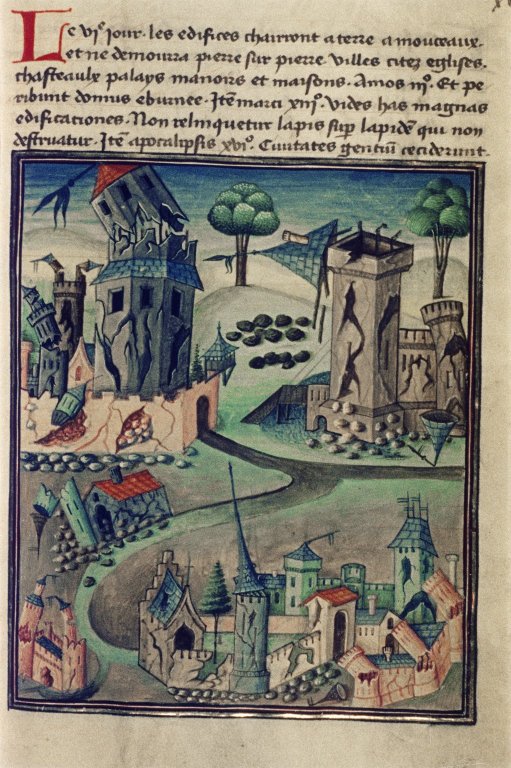 Le vi⁠ᵉ jour · les edifices chairront a terre a mouceaux ·
et ne demourra pierre sur pierre · villes citez eglises ·
chasteaulx palays manoirs et maisons · Amos iiiᵒ · Et pe
ribunt domus eburnee · Itẽ marci xiiiᵒ · Vides has magnas
edificationes · Non relinquetur lapis sup lapidẽ qui non
destruatur · Itẽ apocalipsis xviᵒ · Ciuitates gentiũ ceciderunt ·